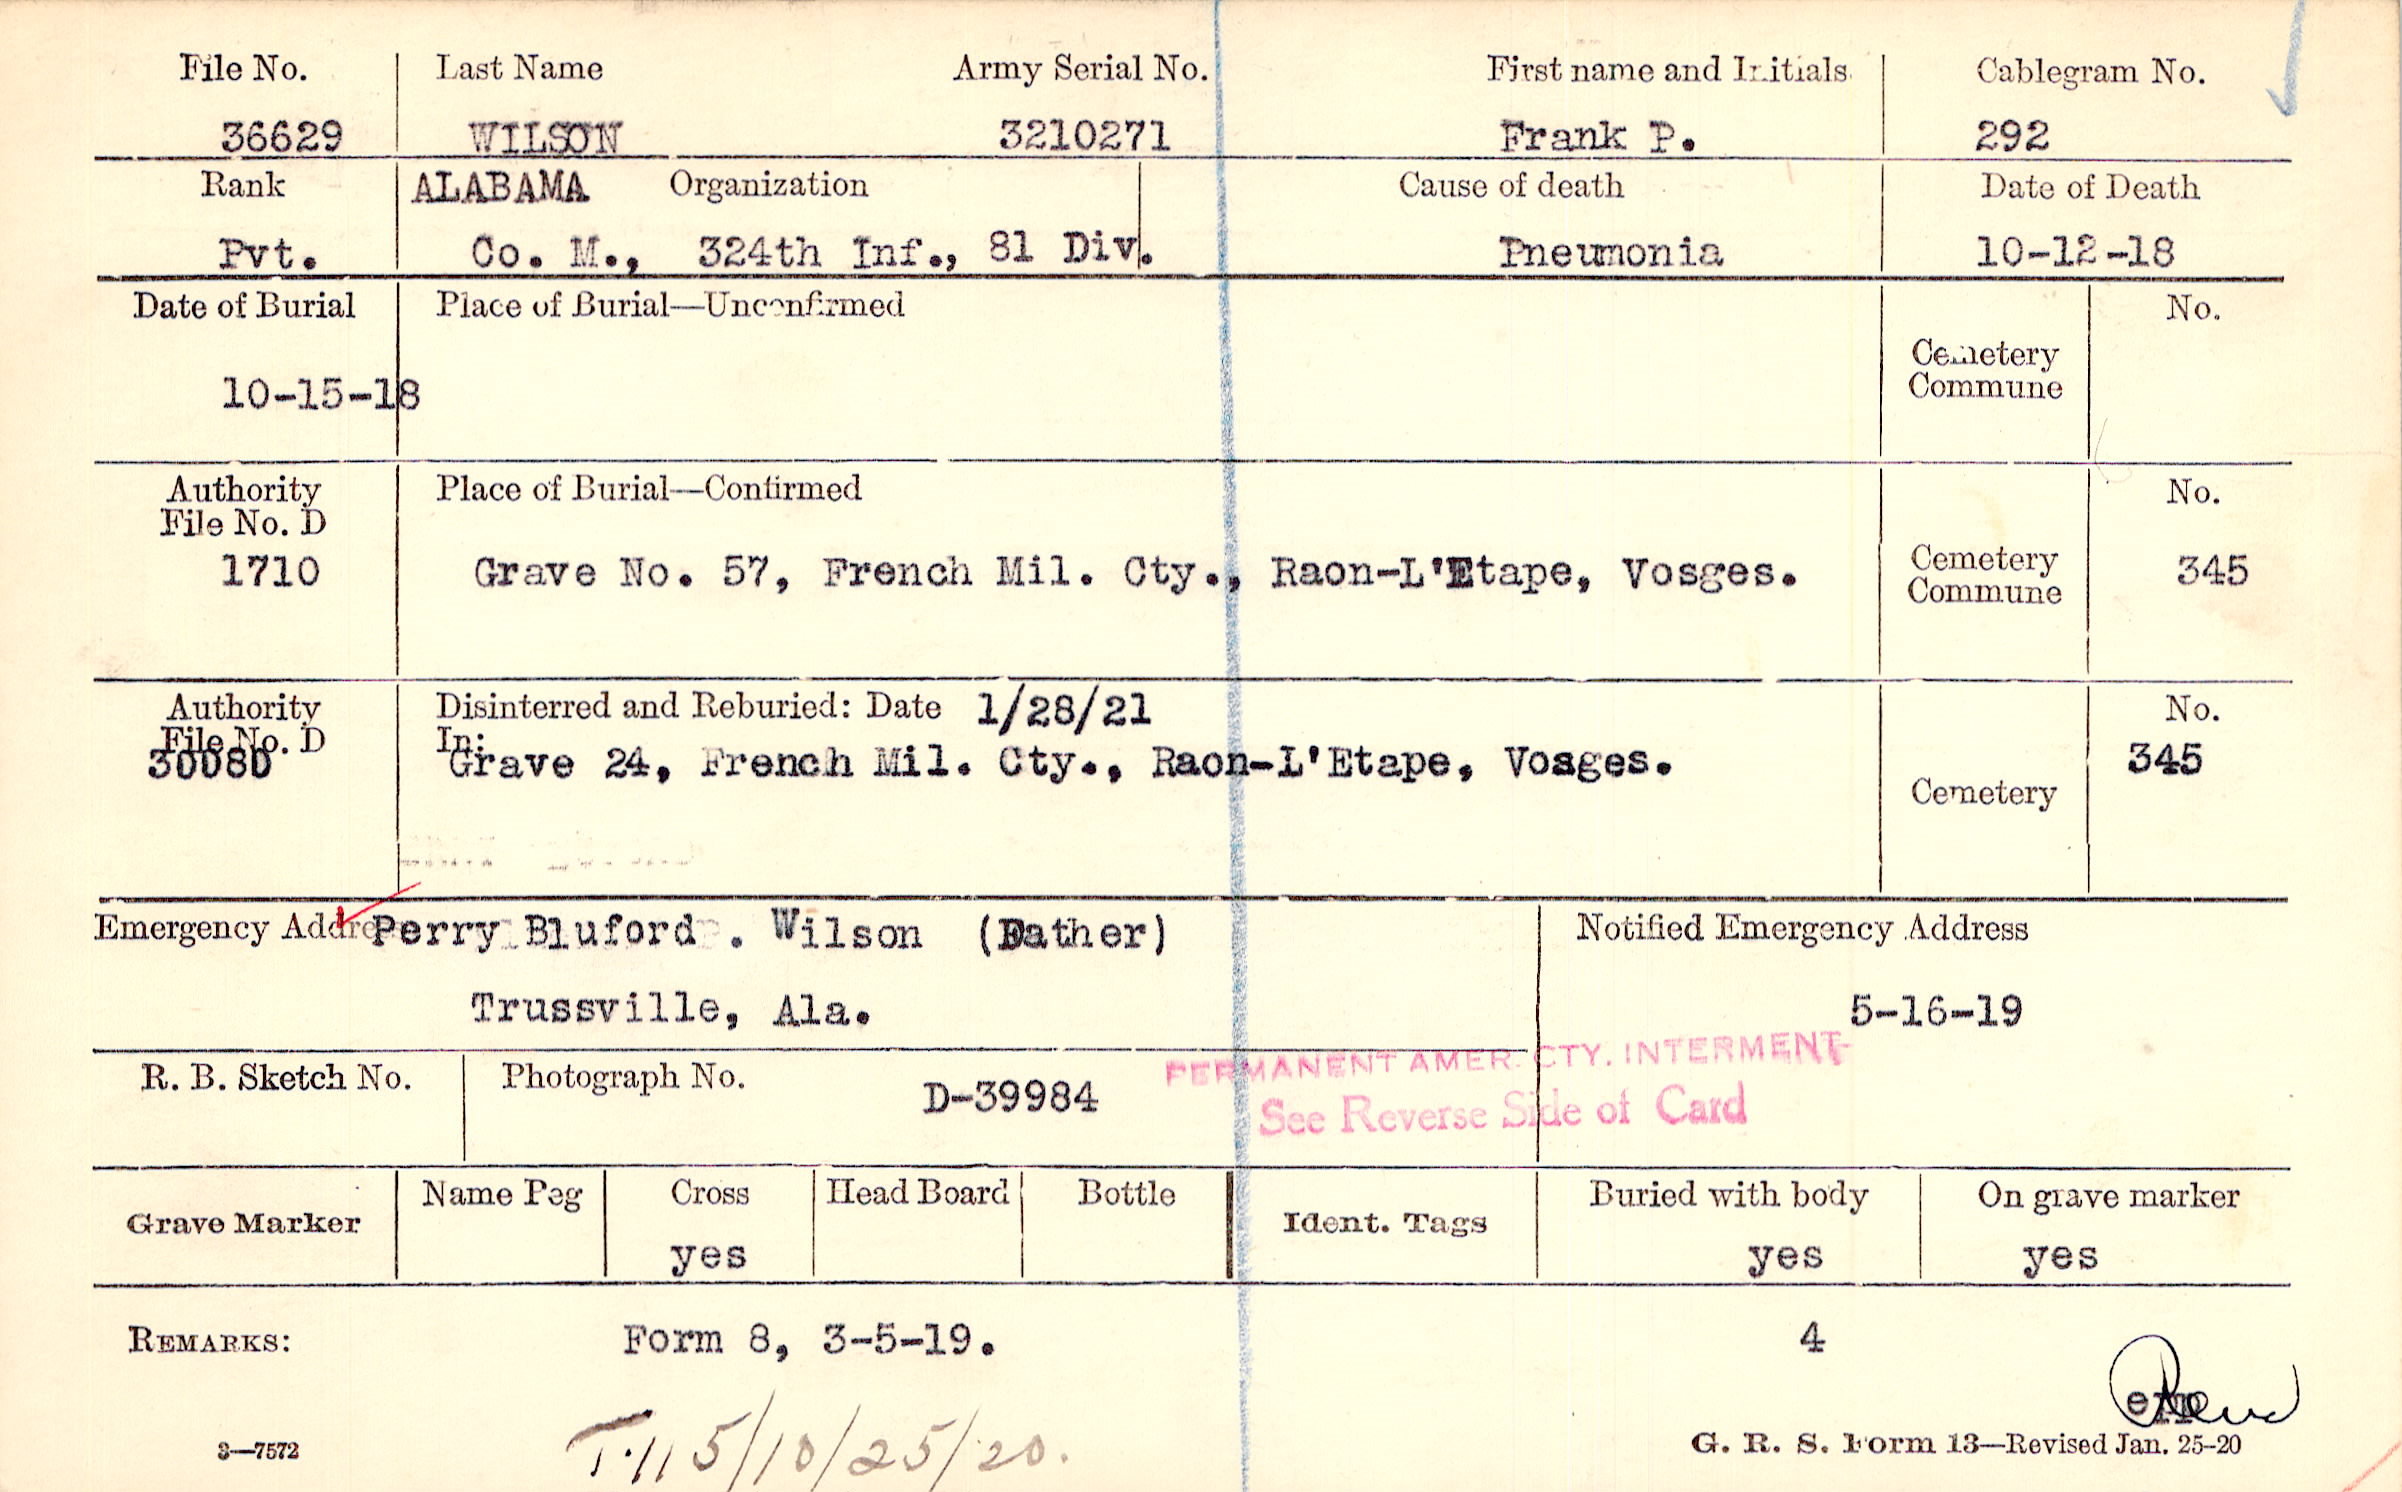 File No. Last Name Army Serial No. First name and Initials Cablegram No.
36629 WILSON 3210271 Frank P. 292
Rank ALABAMA Organization Cause of death Date of Death
Pvt. Co. M., 324th Inf., 81 Div. Pneumonia 10-12-18
Date of Burial Place of Burial—Unconfirmed No.
Cemetery
Commune
10-15-18
Authority Place of Burial—Confirmed No.
File No. D
1710 Grave No. 57, French Mil. Cty., Raon-L'Etape, Vosges. Cemetery 345
Commune
Authority Disinterred and Reburied: Date 1/28/21 No.
File No. D In:
30080 Grave 24, French Mil. Cty., Raon-L'Etape, Vosges. 345
Cemetery
Emergency Addre Perry Bluford . Wilson (Father) Notified Emergency Address
Trussville, Ala. 5-16-19
PERMANENT AMER. CTY. INTERMENT
R. B. Sketch No. Photograph No. D-39984 See Reverse Side of Card
Grave Marker Name Peg Cross Head Board Bottle Ident. Tags Buried with body On grave marker
yes yes yes
REMARKS: Form 8, 3-5-19. 4
3—7572 5/10/25/20. G. R. S. Form 13—Revised Jan. 25-20